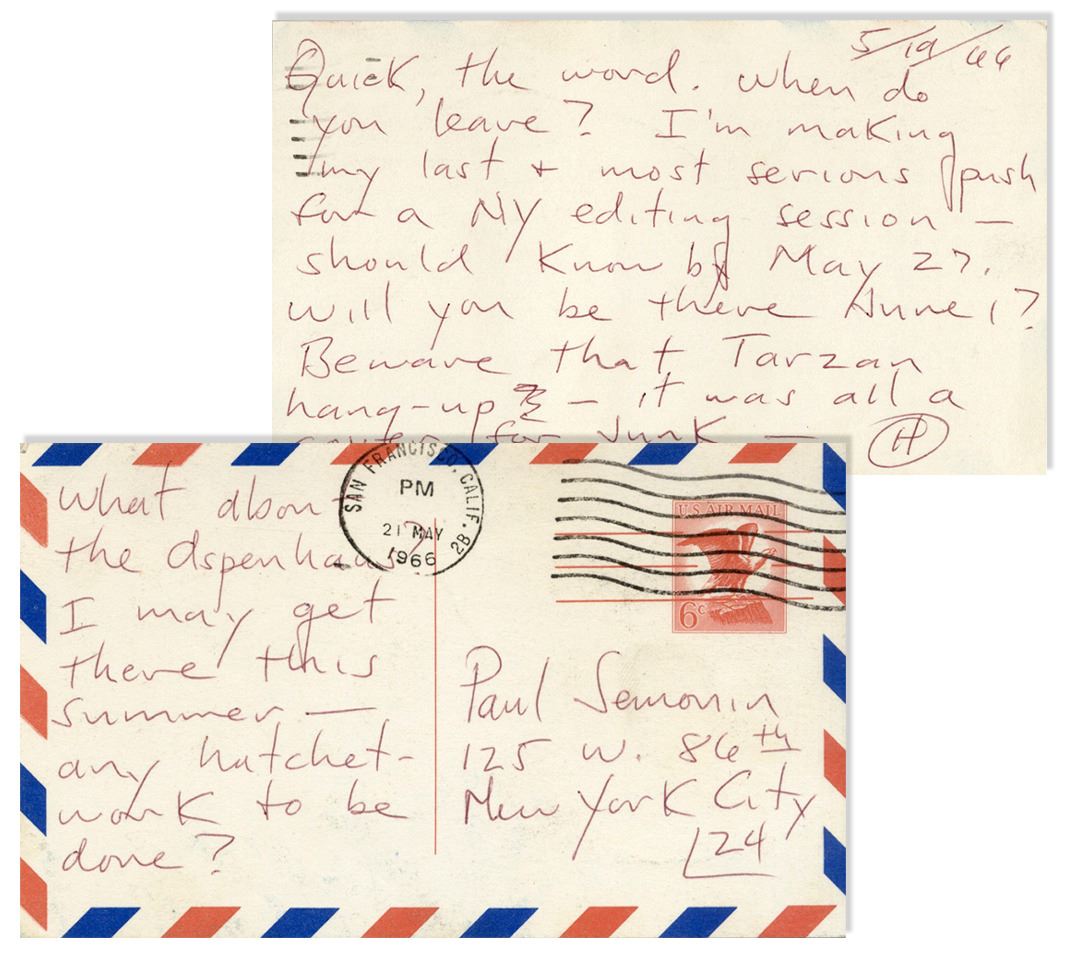 5/19/66
Quick, the word. When do
you leave? I'm making
my last + most serious push
for a NY editing session —
should Know by May 27.
Will you be there June 1?
Beware that Tarzan
hang-up — it was all a
for Junk —
H
What about
the aspenhaus?
I may get
there this
summer —
any hatchet-
work to be
done?
SAN FRANCISCO, CALIF. 2B
PM
21 MAY
1966
U.S. AIR MAIL
6c
Paul Semonin
125 W. 86th
New York City
24